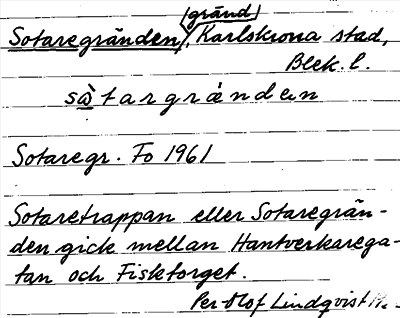 gränd
Sotaregränden/, Karlskrona stad,
Blek. l.
sòtargrándɛn
Sotaregr. Fo 1961
Sotaretrappan eller Sotaregrän-
den gick mellan Hantverkarega-
tan och Fisktorget.
Per-Olof Lindqvist